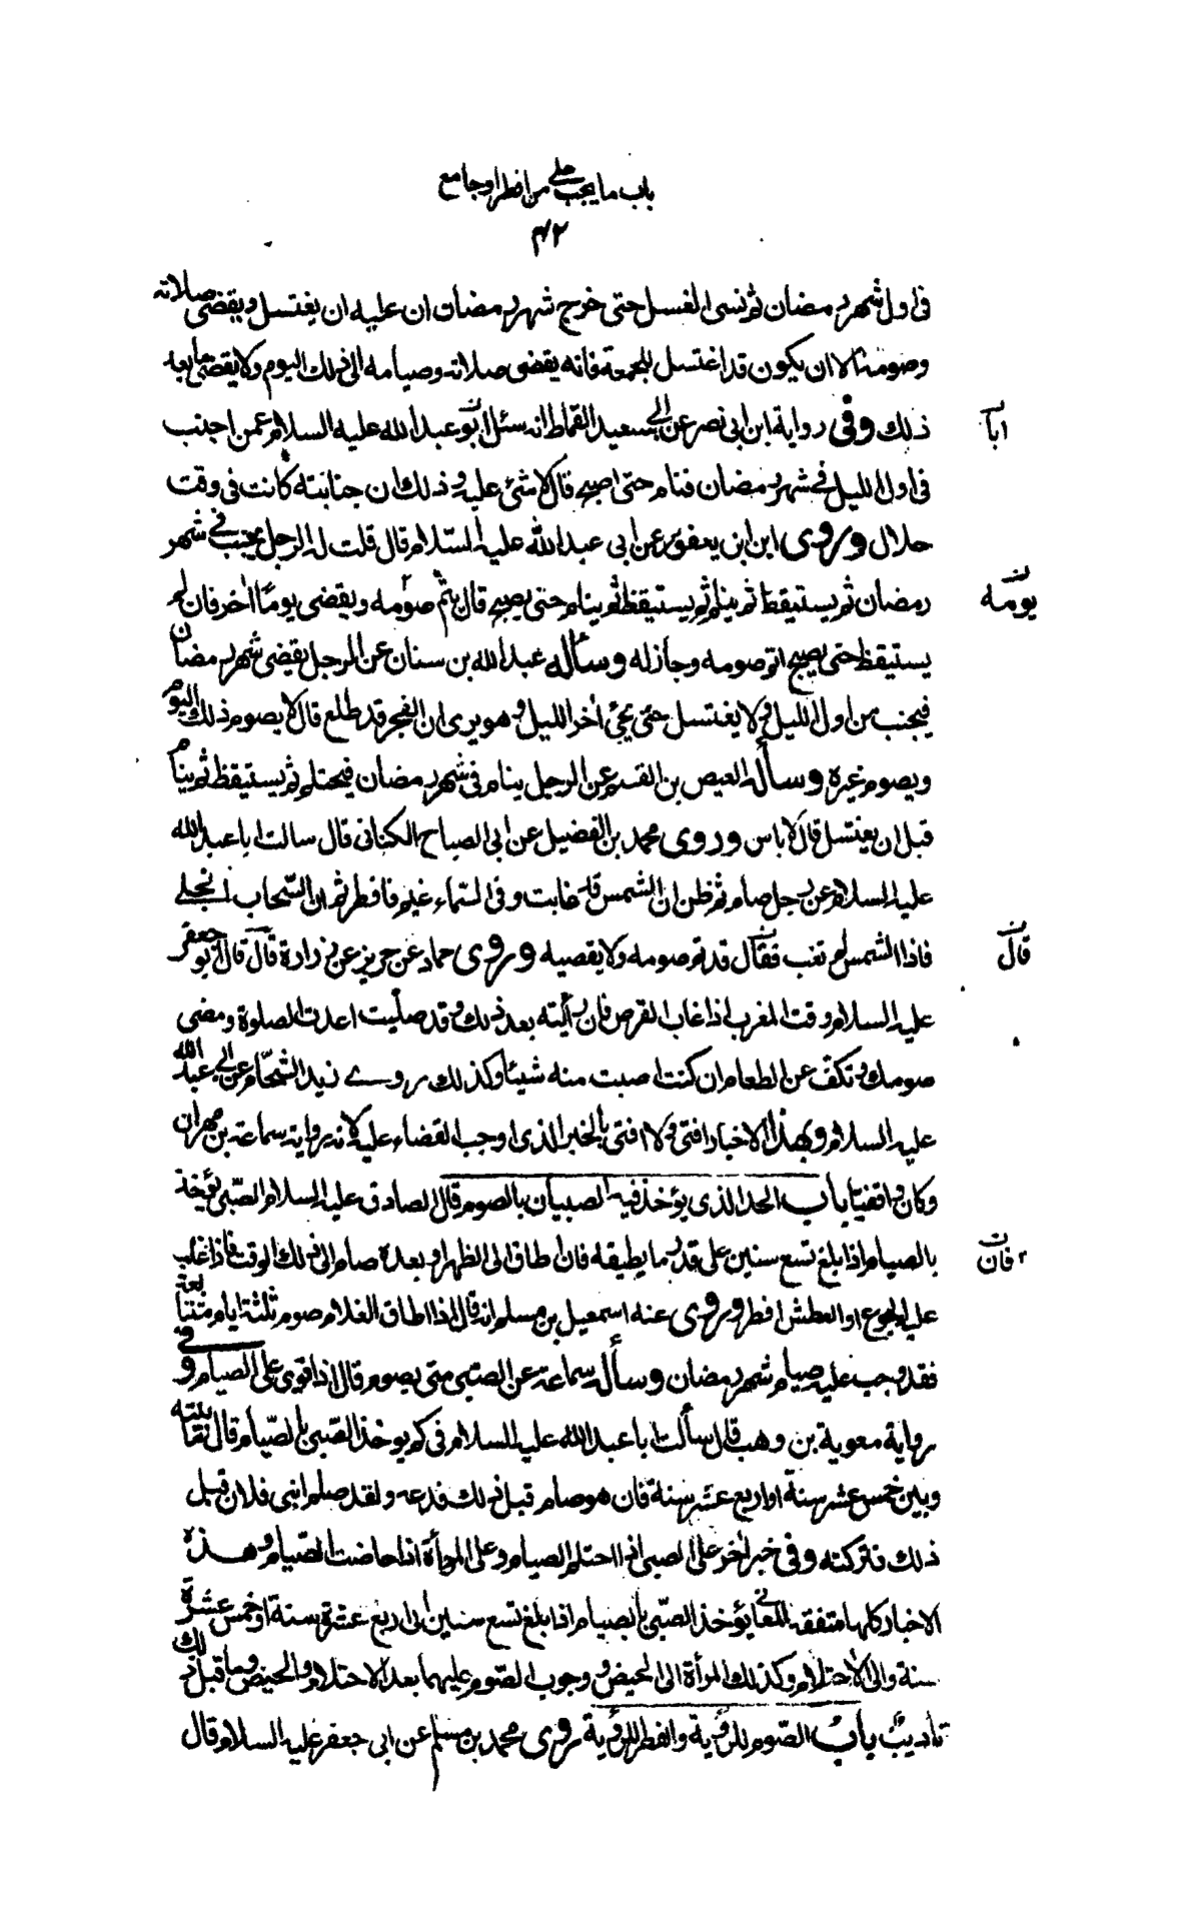 باب ما يجب على من افطر او جامع
٤٢
فى اول شهر رمضان ثم نسى الغسل حتى خرج شهر رمضان ان عليه ان يغتسل ويقضى صلاته
وصومه الا ان يكون قد اغتسل للجمعة فانه يقضى صلاته وصيامه الى ذلك اليوم ولا يقضى ما بعد
ذلك وفى رواية ابن ابى نصر عن ابى سعيد القماط انه سئل ابو عبد الله عليه السلام عمن اجنب
اباَ
فى اول الليل فى شهر رمضان فنام حتى اصبح قال لا شئ عليه وذلك ان جنابته كانت فى وقت
حلال وروى ابن ابى يعفور عن ابى عبد الله عليه السّلام قال قلت له الرجل يجنب فى شهر
رمضان ثم يستيقظ ثم ينام ثم يستيقظ ثم ينام حتى يصبح قال يتم صومه ويقضى يومًا اخر فان لم
يومه
يستيقظ حتى يصبح اتم صومه وجاز له وسأله عبد الله بن سنان عن الرجل يقضى شهر رمضان
فيجنب من اول الليل ولا يغتسل حتى يجئ اخر الليل وهو يرى ان الفجر قد طلع قال لا يصوم ذلك اليوم
ويصوم غيره وسأله العيص بن القسم عن الرجل ينام فى شهر رمضان فيحتلم ثم يستيقظ ثم ينام
قبل ان يغتسل قال لا باس وروى محمد بن الفضيل عن ابى الصباح الكنانى قال سالت ابا عبد الله
عليه السلام عن رجل صام ثم ظن ان الشمس قد غابت وفى السّماء غيم فافطر ثم ان السّحاب انجلى
فاذا الشمس لم تغب فقال قد تم صومه ولا يقضيه وروى حماد عن حريز عن زرارة قال قال ابو جعفر
قال
عليه السلام وقت المغرب اذا غاب القرص فان رأيته بعد ذلك وقد صلّيت اعدت الصلوة ومضى
صومك وتكف عن الطعام ان كنت اصبت منه شيئا وكذلك روى زيد الشحّام عن ابى عبد الله
عليه السلام وبهذا الاخبار افتى ولا افتى بالخبر الذى اوجب القضاء عليه لانه رواية سماعة بن مهران
وكان واقفيًا باب الحد الذى يؤخذ فيه الصبيان بالصوم قال الصادق عليه السلام الصّبى يؤخذ
بالصيام اذا بلغ تسع سنين على قدر ما يطيقه فان اطاق الى الظهر او بعده صام الى ذلك الوقت فاذا غلب
فان
عليه الجوع او العطش افطر وروى عنه اسمعيل بن مسلم انه قال اذا اطاق الغلام صوم ثلثة ايام متتابعة
فقد وجب عليه صيام شهر رمضان وسأله سماعة عن الصّبى متى يصوم قال اذا قوى على الصيام وفى
رواية معوية بن وهب قال سألت ابا عبد الله عليه السلام فى كم يؤخذ الصّبى بالصّيام قال ما بينه
وبين خمس عشر سنة او اربع عشر سنة فان هو صام قبل ذلك فدعه ولقد صام ابنى فلان قبل
ذلك فتركته وفى خبر اخر على الصبى اذا احتلم الصيام وعلى المرأة اذا حاضت الصّيام وهذه
الاخبار كلها متفقة المعانى يؤخذ الصّبى بالصيام اذا بلغ تسع سنين الى اربع عشرة سنة او خمس عشرة
سنة والى الاحتلام وكذلك المرأة الى الحيض ووجوب الصّوم عليهما بعد الاحتلام والحيض وما قبل ذلك
تأديب باب الصّوم للرؤية والفطر للرؤية روى محمد بن مسلم عن ابى جعفر عليه السلام قال